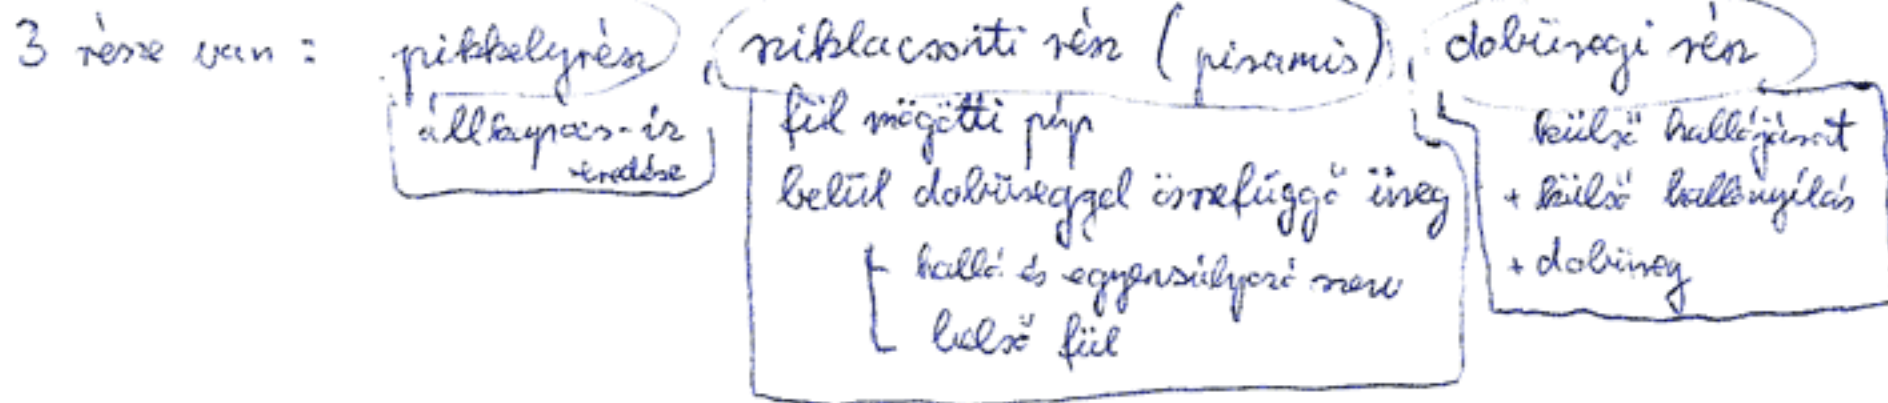 3 része van : pikkelyrész, sziklacsonti rész (piramis), dobüregi rész
állkapocs-íz
eredése
fül mögötti púp
belül dobüreggel összefüggő üreg
halló és egyensúlyozó szerv
belső fül
külső hallójárat
+ külső hallónyílás
+ dobüreg